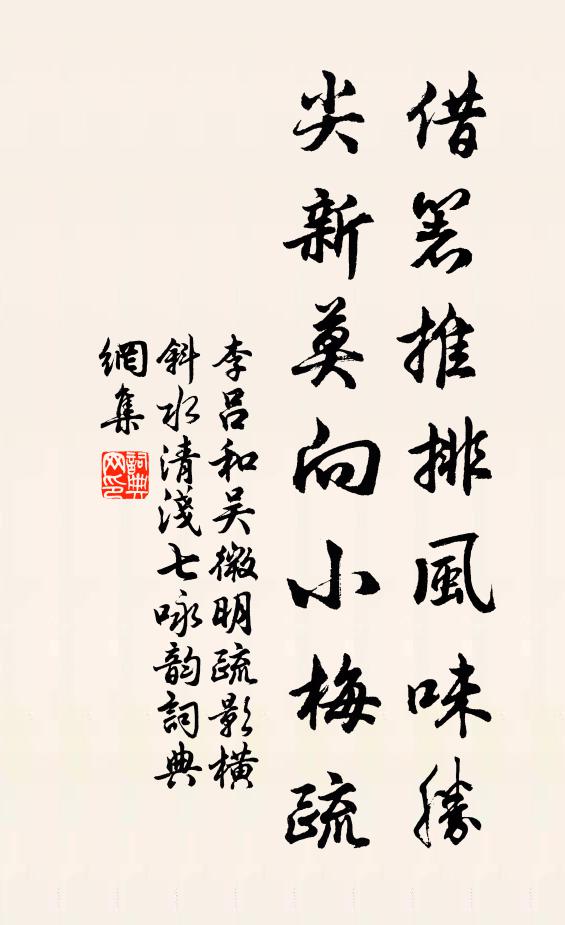 借箸推排風味勝
尖新莫向小梅疏
李呂和吴徽明疏影横
斜水清淺七咏韵詞典
網集
詞典
网印